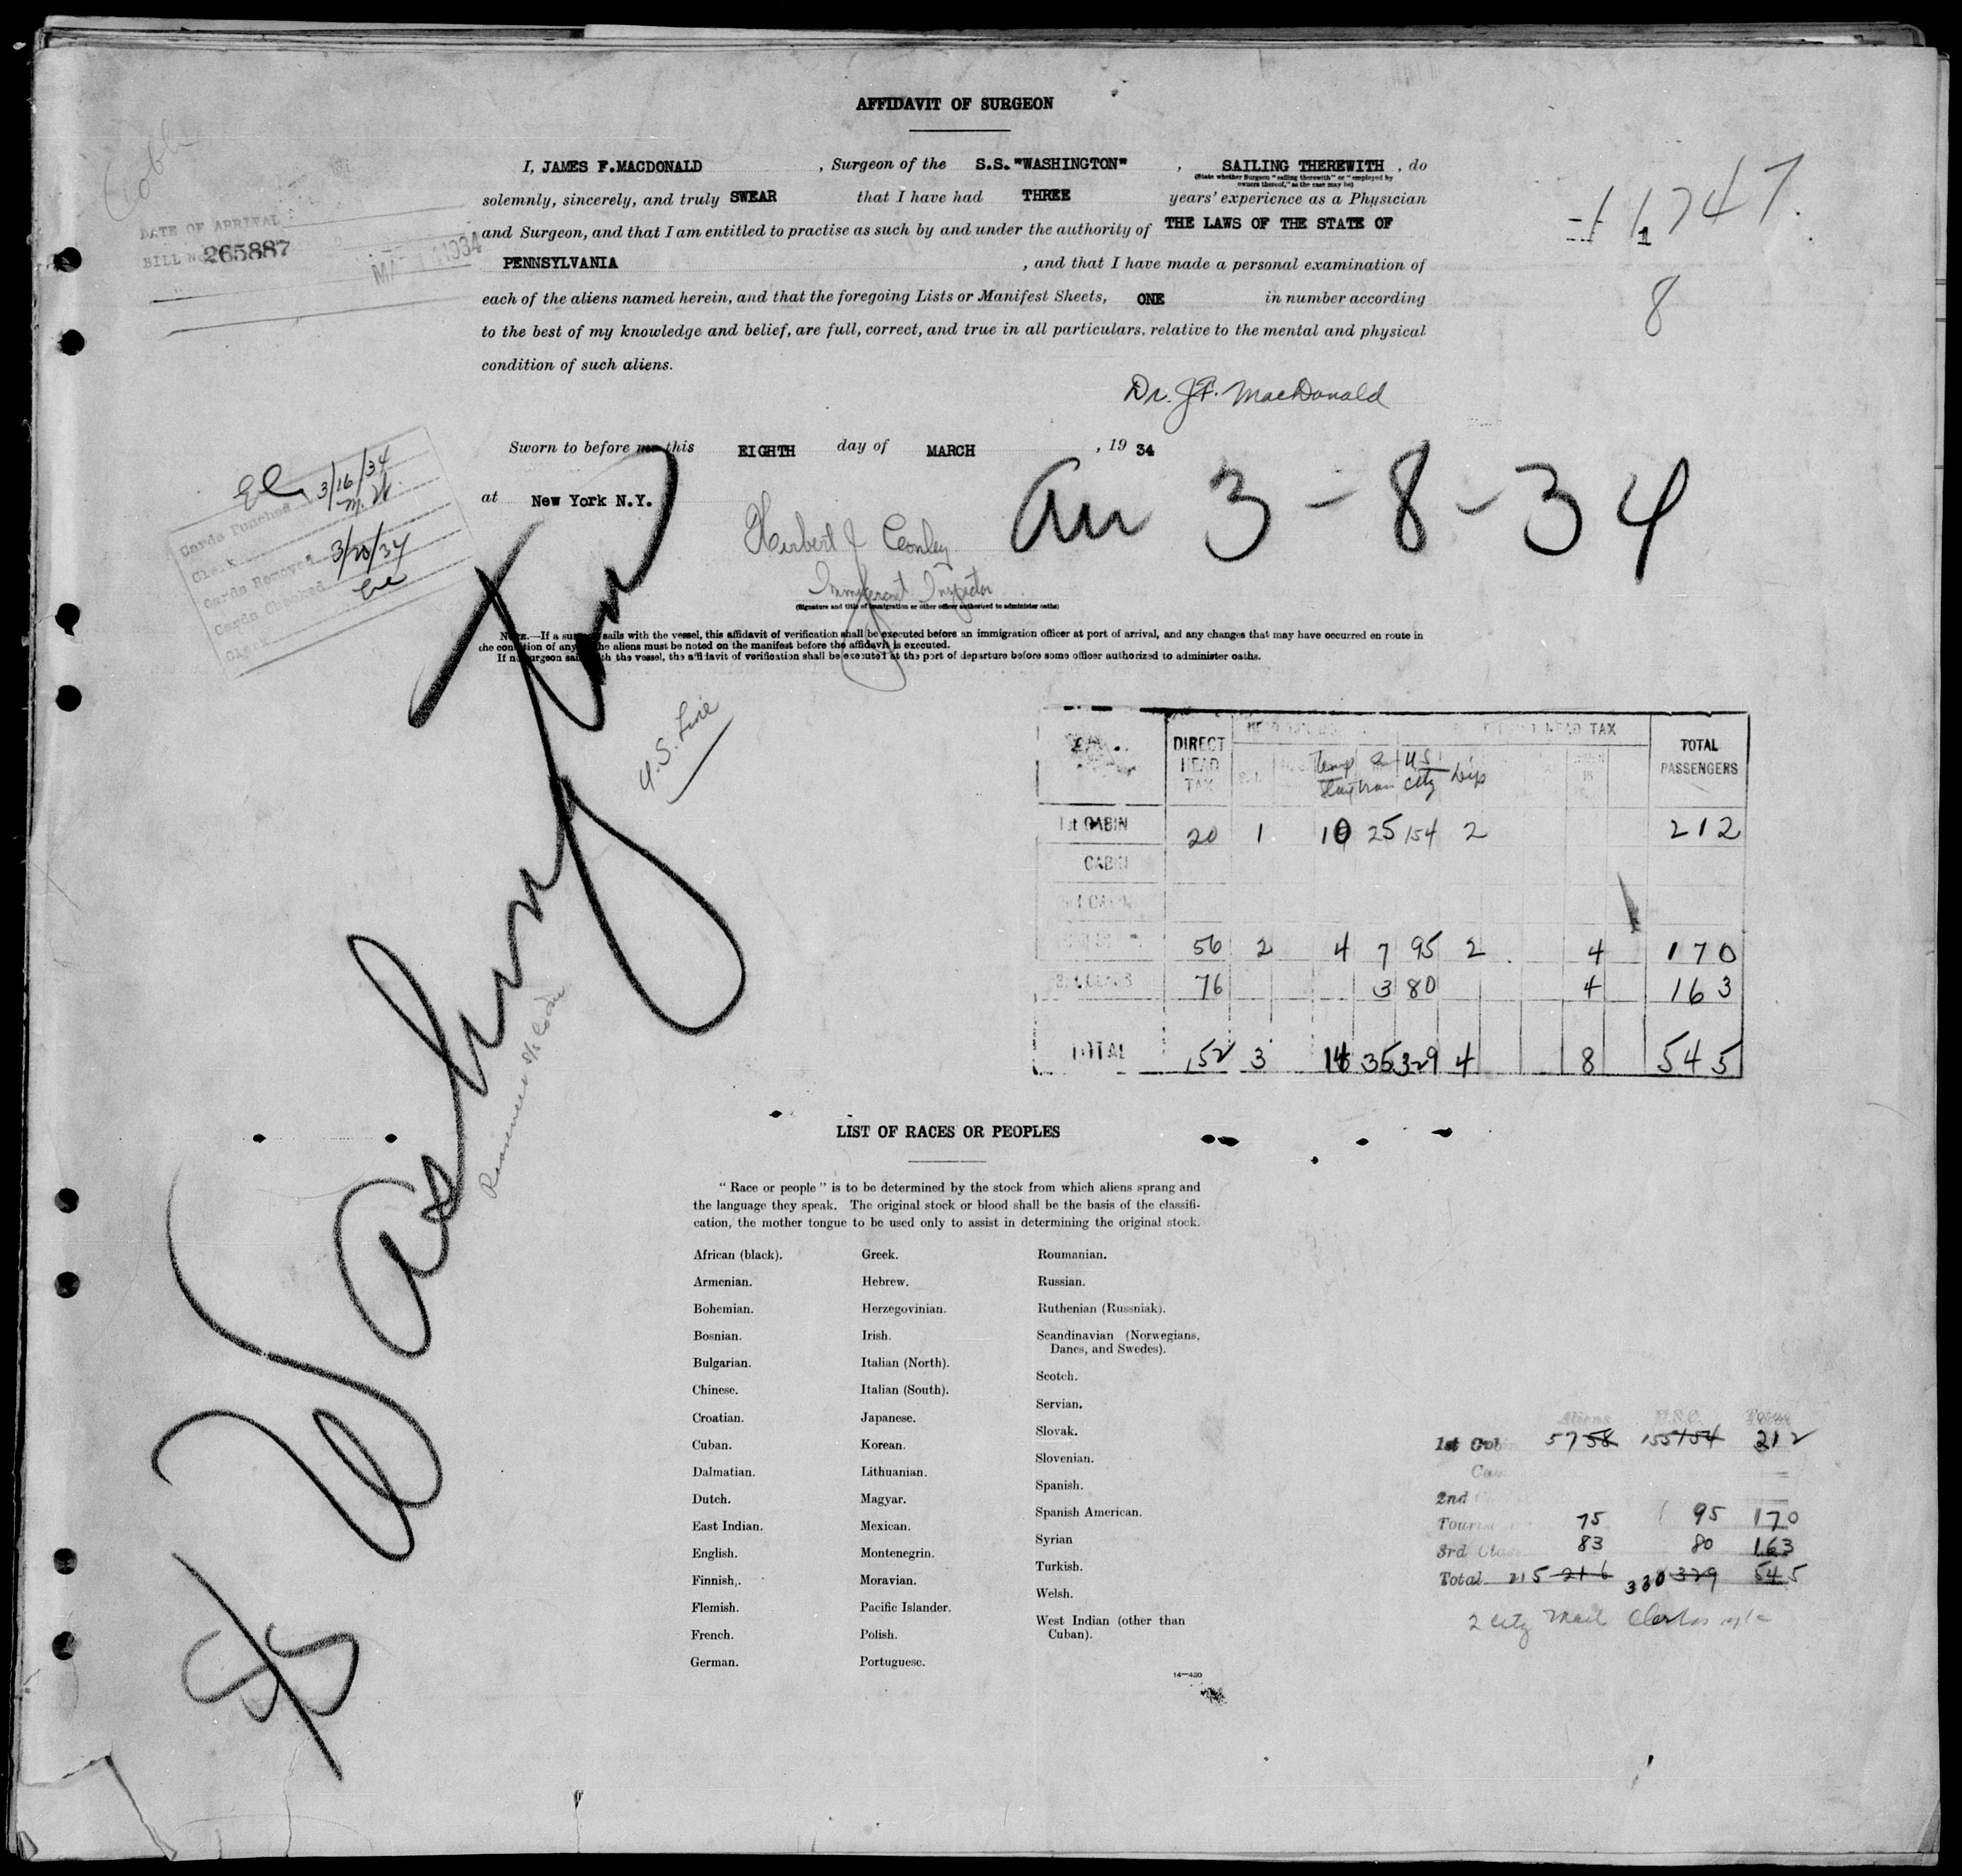 AFFIDAVIT OF SURGEON
I, JAMES F.MACDONALD , Surgeon of the S.S. "WASHINGTON" , SAILING THEREWITH , do
(State whether Surgeon "sailing therewith" or "employed by
owners thereof," as the case may be)
solemnly, sincerely, and truly SWEAR that I have had THREE years' experience as a Physician
and Surgeon, and that I am entitled to practise as such by and under the authority of THE LAWS OF THE STATE OF
PENNSYLVANIA , and that I have made a personal examination of
each of the aliens named herein, and that the foregoing Lists or Manifest Sheets, ONE in number according
to the best of my knowledge and belief, are full, correct, and true in all particulars, relative to the mental and physical
condition of such aliens.
Dr. J.F. MacDonald
Sworn to before me this EIGHTH day of MARCH , 19 34
at New York N.Y.
Herbert J Conley
Immigrant Inspector
(Signature and title of immigration or other officer authorized to administer oaths)
NOTE.—If a surgeon sails with the vessel, this affidavit of verification shall be executed before an immigration officer at port of arrival, and any changes that may have occurred en route in
the condition of any of the aliens must be noted on the manifest before the affidavit is executed.
If no surgeon sails with the vessel, the affidavit of verification shall be executed at the port of departure before some officer authorized to administer oaths.
DATE OF ARRIVAL
BILL No 265887
1934
11747.
8
Cards Punched 3/16/34
Clerk M.W.
Cards Removed 3/20/34
Cards Checked
Clerk
an 3-8-34
S/S Washington
U.S. Line
DIRECT HEAD TAX
HEAD TAX
TOTAL PASSENGERS
Temp U.S. Dip
City
1st CABIN 20 1 10 25 154 2 212
CABIN
56 2 4 7 95 2 4 170
76 3 80 4 163
TOTAL 152 3 14 35 329 4 8 545
LIST OF RACES OR PEOPLES
" Race or people " is to be determined by the stock from which aliens sprang and
the language they speak. The original stock or blood shall be the basis of the classifi-
cation, the mother tongue to be used only to assist in determining the original stock.
African (black).
Armenian.
Bohemian.
Bosnian.
Bulgarian.
Chinese.
Croatian.
Cuban.
Dalmatian.
Dutch.
East Indian.
English.
Finnish.
Flemish.
French.
German.
Greek.
Hebrew.
Herzegovinian.
Irish.
Italian (North).
Italian (South).
Japanese.
Korean.
Lithuanian.
Magyar.
Mexican.
Montenegrin.
Moravian.
Pacific Islander.
Polish.
Portuguese.
Roumanian.
Russian.
Ruthenian (Russniak).
Scandinavian (Norwegians,
Danes, and Swedes).
Scotch.
Servian.
Slovak.
Slovenian.
Spanish.
Spanish American.
Syrian
Turkish.
Welsh.
West Indian (other than
Cuban).
14—430
Aliens U.S.C. Total
1st Cab 57 58 155 154 212
2nd
Touris 75 95 170
3rd Class 83 80 163
Total 215 216 330 329 545
2 City Mail Clerks